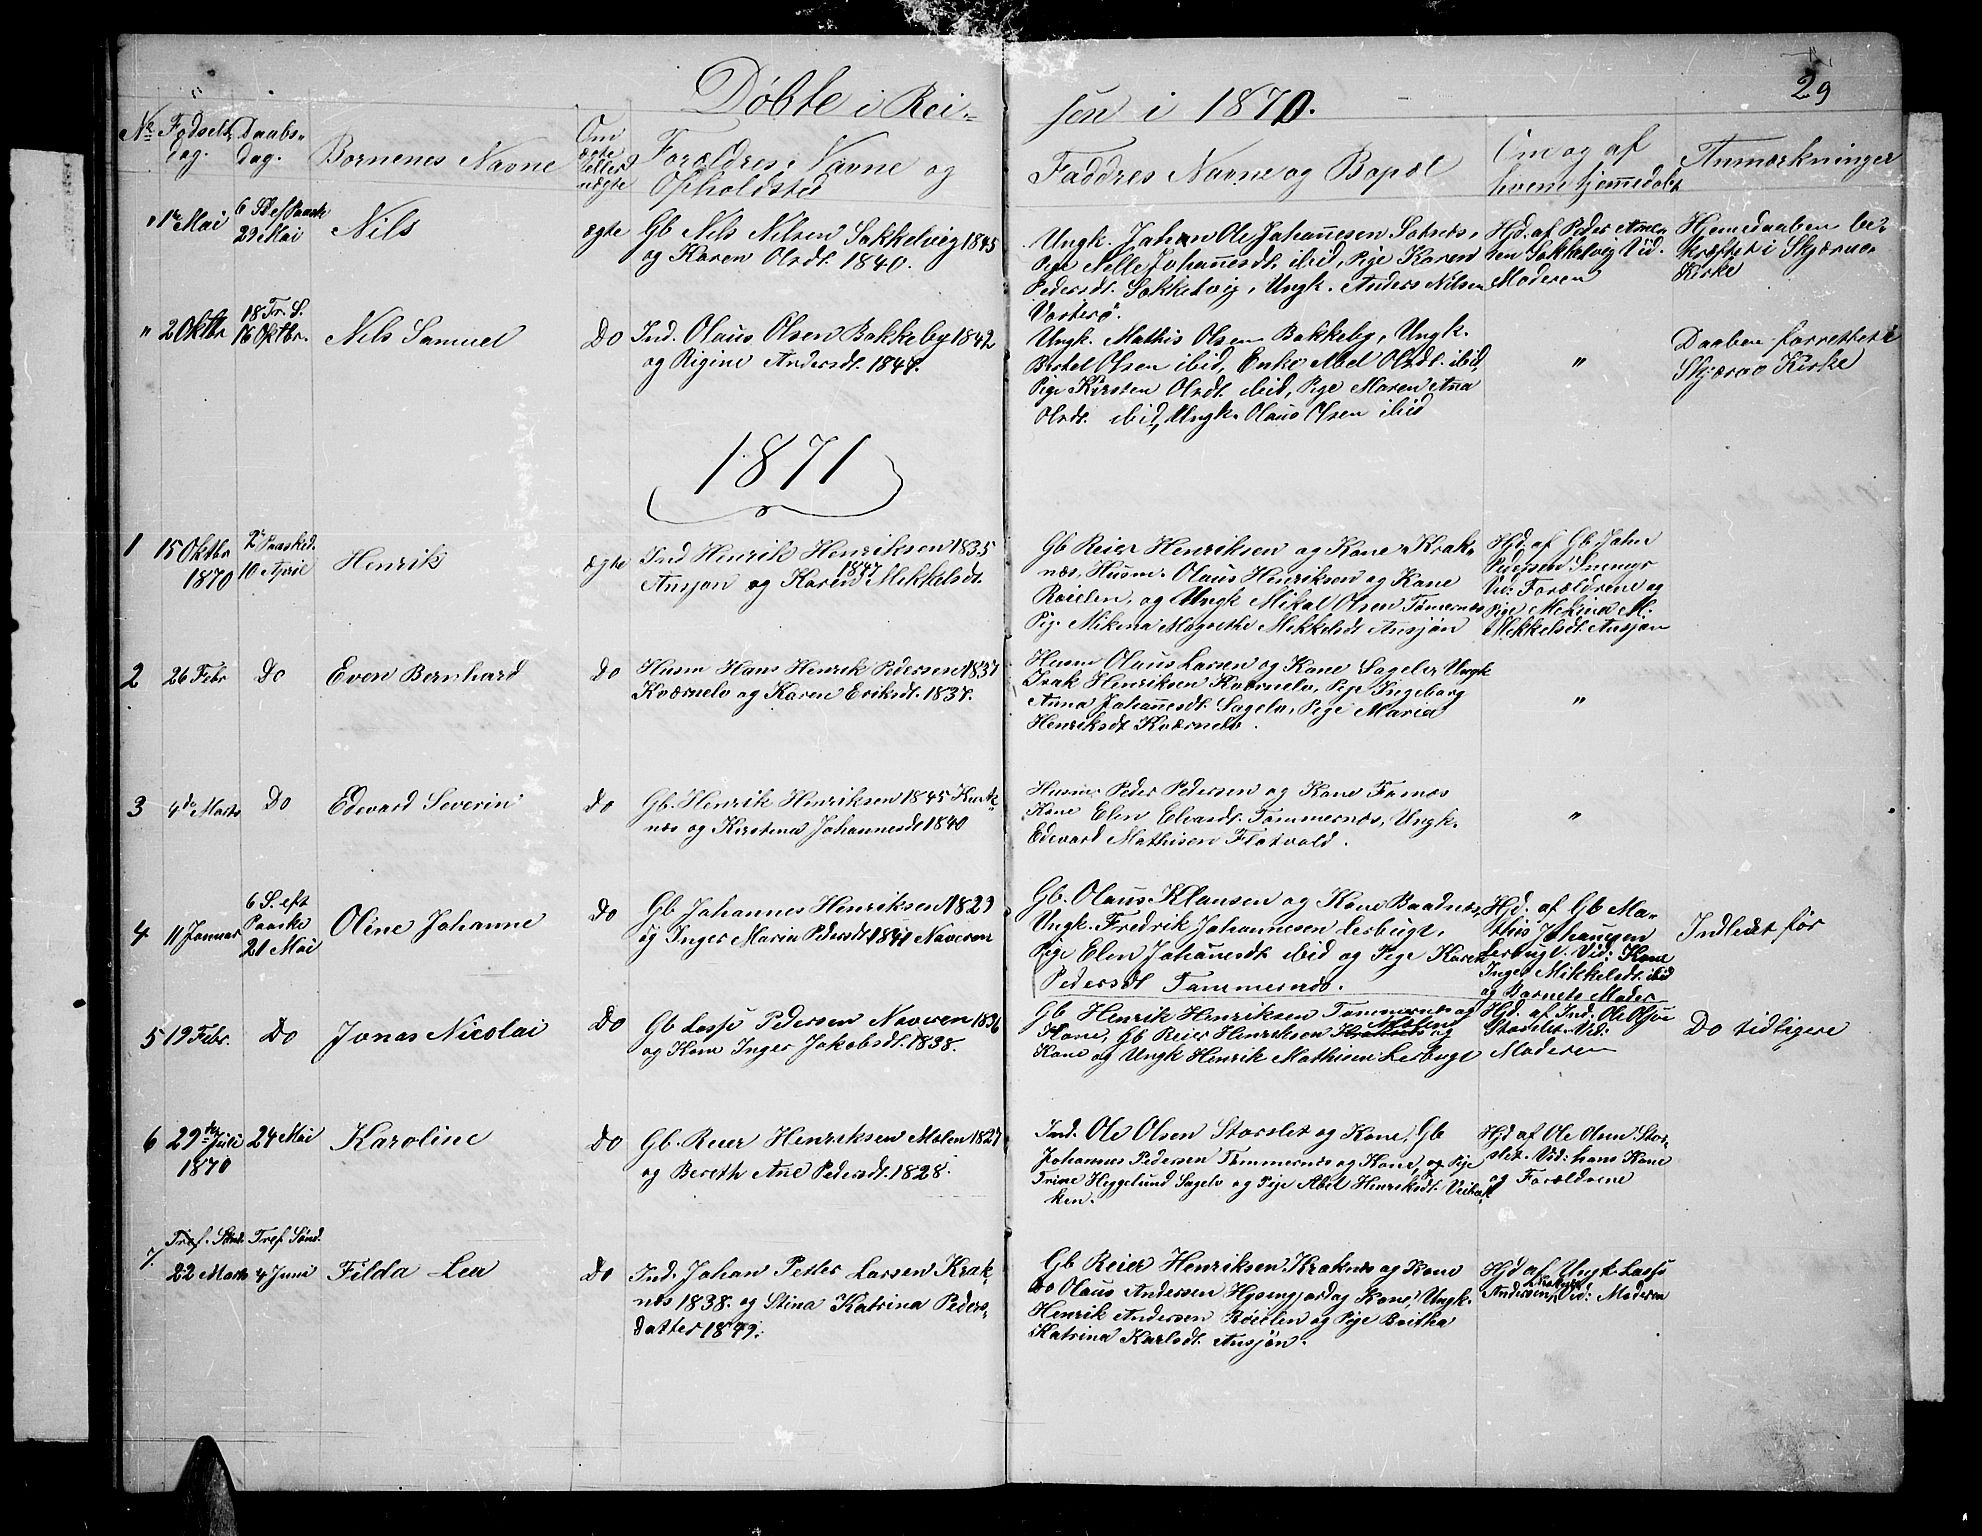 29
Døbte i Rei-
sen i 1870.
No
Fødsels
dag.
Daabs-
dag.
Børnenes Navne
Om
ægte
eller
uægte
Forældres Navne og
Opholdsted
Faddres Navne og Bopæl
Om og af
hvem hjemmedøbt
Anmærkninger
" 1ste Mai
6 S. ef Paaske
29 Mai
Nils
ægte
Gb Nils Nilsen Sokkelvig 1845
og Karen Olsdt. 1840.
Ungk. Johan Ole Johannesen
Pige Johannesdt. ibid, Pige Karen
Pedersdt. Sokkelvig, Ungk. Anders Nilsen
Vorterø.
Hjd. af Peder
Sokkelvig Vid.
Moderen
Hjemedaaben be-
kræftet i Skjærvø
Kirke
" 2 Oktbr
18 Tr. S.
16 Oktbr.
Nils Samuel
Do
Ind. Olaus Olsen Bakkeby 1842
og Rigine Andersdt. 1847.
Ungk. Mathis Olsen Bakkeby, Ungk.
Bertel Olsen ibid, Enke Abel Olsdt. ibid,
Pige Kirsten Olsdt. ibid, Pige Maren Ana
Olsdt. ibid, Ungk. Olaus Olsen ibid
"
Daaben forrettet i
Skjærvø Kirke
1871
1
15 Oktbr
1870
2 Paasked.
10 April
Henrik
ægte
Ind Henrik Henriksen 1835
Ansjøn og Karen 1847 Mikkelsdt.
Gb Reier Henriksen og Kone Krak-
næs, Husm. Olaus Henriksen og Kone
Røielen, og Ungk Mikal Olsen Tømernes
Pig. Mikena Magrethe Mikkelsdt Ansjøn
Hjd. af Gb John
Pedersen
Vid: Forældrene og
Pige M.
Mikkelsdt. Ansjøn
2
26 Febr
Do
Even Bernhard
Do
Husm Hans Henrik Pedersen 1837
Kværnelv og Karen Eriksdt. 1837.
Husm Olaus Larsen og Kone Sagelv Ungk
Isak Henriksen Kværnelv, Pige Ingeborg
Anna Johannesdt. Sagelv, Pige Maria
Henriksdt Kværnelv.
"
3
4de Marts
Do
Edevard Severin
Do
Gb. Henrik Henriksen 1845 Krak-
næs og Kirstina Johannesdt 1840
Husm Peder Pedersen og Kone
Kone Elen Elvardt. Tømmernæs, Ungk.
Edevard Mathisen Flatvold.
"
4
11 Januar
6 S. eft
Paaske
21 Mai
Oline Johanne
Do
Gb Johannes Henriksen 1829
og Inger Maria Pedersdt 1841 Naveren
Gb. Olaus Klausen og Kone Baadnæs,
Ungk. Fredrik Johannesen Lerbugt,
Pige Elen Johanesdt ibid og Pige Karen
Pedersdt Tømmernæs.
Hjd. af Gb Ma-
this Johansen
Lerbugt. Vid: Kone
Inger Mikkelsdt. ibid
og Barnets Moder
Indledet før
5
19 Febr.
Do
Jonas Nicolai
Do
Gb Lasse Pedersen Naveren 1836
og Kone Inger Jakobsdt. 1838.
Gb Henrik Henriksen Tømmernes og
Kone, Gb Reier Henriksen Molen og
Kone og Ungk Henrik Mathisen Lerbugt
Hjd. af Ind. Ole Olsen
Storslet. Vid:
Moderen
Do tidligere
6
29de Juli
1870
24 Mai
Karoline
Do
Gb. Reier Henriksen Molen 1827
og Bereth Ane Pedersdt. 1828.
Ind. Ole Olsen Storslet og Kone, Gb
Johannes Pedersen Tømmernes og Kone, og Pige
Trine Heggelund Sagelv og Pige Abel Henriksdt.
ken.
Hjd af Ole Olsen Stor-
slet. Vid: hans Kone
og Forældrene
7.
Tref. Sønd.
22 Marts
Tref Sønd.
4 Juni
Filda Lea
Do
Ind. Johan Petter Larsen Krak-
næs 1838. og Stina Katrina Peders-
datter 1849.
Gb Reier Henriksen Kraknæs og Kone
Do Olaus Andersen Hysingjord og Kone, Ungk.
Henrik Andersen Røielen og Pige Britha
Katrina Karlsdt. Ansjøn.
Hjd af Ungk Lasse
Andersen Kraknæs, Vid: Moderen